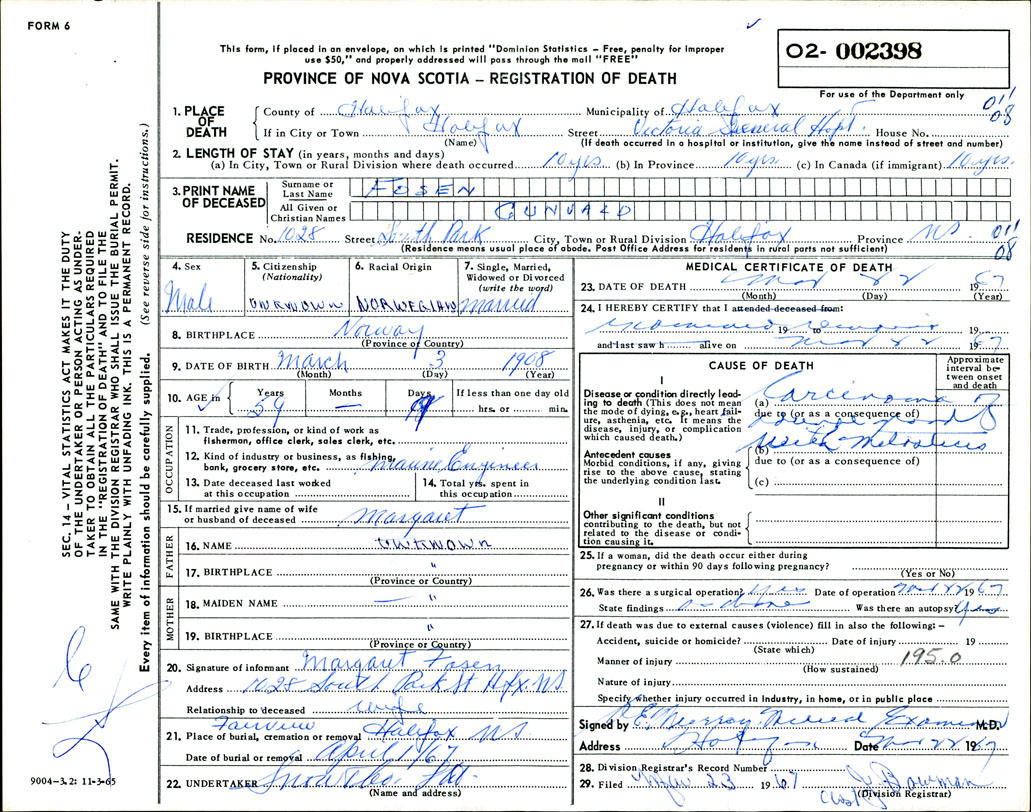 FORM 6
This form, if placed in an envelope, on which is printed "Dominion Statistics – Free, penalty for improper
use $50," and properly addressed will pass through the mail "FREE"
PROVINCE OF NOVA SCOTIA – REGISTRATION OF DEATH
02- 002398
For use of the Department only
011
08
SEC. 14 – VITAL STATISTICS ACT MAKES IT THE DUTY
OF THE UNDERTAKER OR PERSON ACTING AS UNDER-
TAKER TO OBTAIN ALL THE PARTICULARS REQUIRED
IN THE "REGISTRATION OF DEATH" AND TO FILE THE
SAME WITH THE DIVISION REGISTRAR WHO SHALL ISSUE THE BURIAL PERMIT.
WRITE PLAINLY WITH UNFADING INK. THIS IS A PERMANENT RECORD.
Every item of information should be carefully supplied. (See reverse side for instructions.)
1. PLACE OF DEATH
County of Halifax Municipality of Halifax
If in City or Town Halifax Street Victoria General Hospt. House No.
(Name) (If death occurred in a hospital or institution, give the name instead of street and number)
2. LENGTH OF STAY (in years, months and days)
(a) In City, Town or Rural Division where death occurred 10 yrs (b) In Province 10 yrs (c) In Canada (if immigrant) 10 yrs.
3. PRINT NAME OF DECEASED
Surname or Last Name FOSEN
All Given or Christian Names GUNVALD
RESIDENCE No. 1028 Street South Park City, Town or Rural Division Halifax Province NS 011
(Residence means usual place of abode. Post Office Address for residents in rural parts not sufficient) 08
4. Sex
Male
5. Citizenship
(Nationality)
UNKNOWN
6. Racial Origin
NORWEGIAN
7. Single, Married,
Widowed or Divorced
(write the word)
Married
8. BIRTHPLACE Norway
(Province or Country)
9. DATE OF BIRTH March 3 1908
(Month) (Day) (Year)
10. AGE in Years Months Days If less than one day old
59 — 19 hrs. or min.
OCCUPATION
11. Trade, profession, or kind of work as
fisherman, office clerk, sales clerk, etc.
12. Kind of industry or business, as fishing,
bank, grocery store, etc. Marine Engineer
13. Date deceased last worked
at this occupation
14. Total yrs. spent in
this occupation
15. If married give name of wife
or husband of deceased Margaret
FATHER
16. NAME UNKNOWN
17. BIRTHPLACE "
(Province or Country)
MOTHER
18. MAIDEN NAME — "
19. BIRTHPLACE "
(Province or Country)
20. Signature of informant Margaret Fosen
Address 1028 South Park St Hfx. NS
Relationship to deceased wife
21. Place of burial, cremation or removal Fairview Halifax NS
Date of burial or removal April 1/67
22. UNDERTAKER Snow &
(Name and address)
MEDICAL CERTIFICATE OF DEATH
23. DATE OF DEATH Mar 22 1967
(Month) (Day) (Year)
24. I HEREBY CERTIFY that I attended deceased from:
examined 19 to 19
and last saw h alive on Mar 22 1967
CAUSE OF DEATH
Approximate
interval be-
tween onset
and death
I
Disease or condition directly lead-
ing to death (This does not mean
the mode of dying, e.g., heart fail-
ure, asthenia, etc. It means the
disease, injury, or complication
which caused death.)
(a) Carcinoma ?
due to (or as a consequence of)
(b) with Metastasis
Antecedent causes
Morbid conditions, if any, giving
rise to the above cause, stating
the underlying condition last.
due to (or as a consequence of)
(c)
II
Other significant conditions
contributing to the death, but not
related to the disease or condi-
tion causing it.
25. If a woman, did the death occur either during
pregnancy or within 90 days following pregnancy?
(Yes or No)
26. Was there a surgical operation? yes Date of operation Mar 22 1967
State findings as above Was there an autopsy? yes
27. If death was due to external causes (violence) fill in also the following: –
Accident, suicide or homicide? Date of injury 19
(State which)
Manner of injury 195.0
(How sustained)
Nature of injury
Specify whether injury occurred in industry, in home, or in public place
Signed by R E Murray Medical Examiner M.D.
Address Halifax Date Mar 22 1967
28. Division Registrar's Record Number
29. Filed Mar 23 1967 J Bowman
(Division Registrar)
9004-3.2: 11-3-65